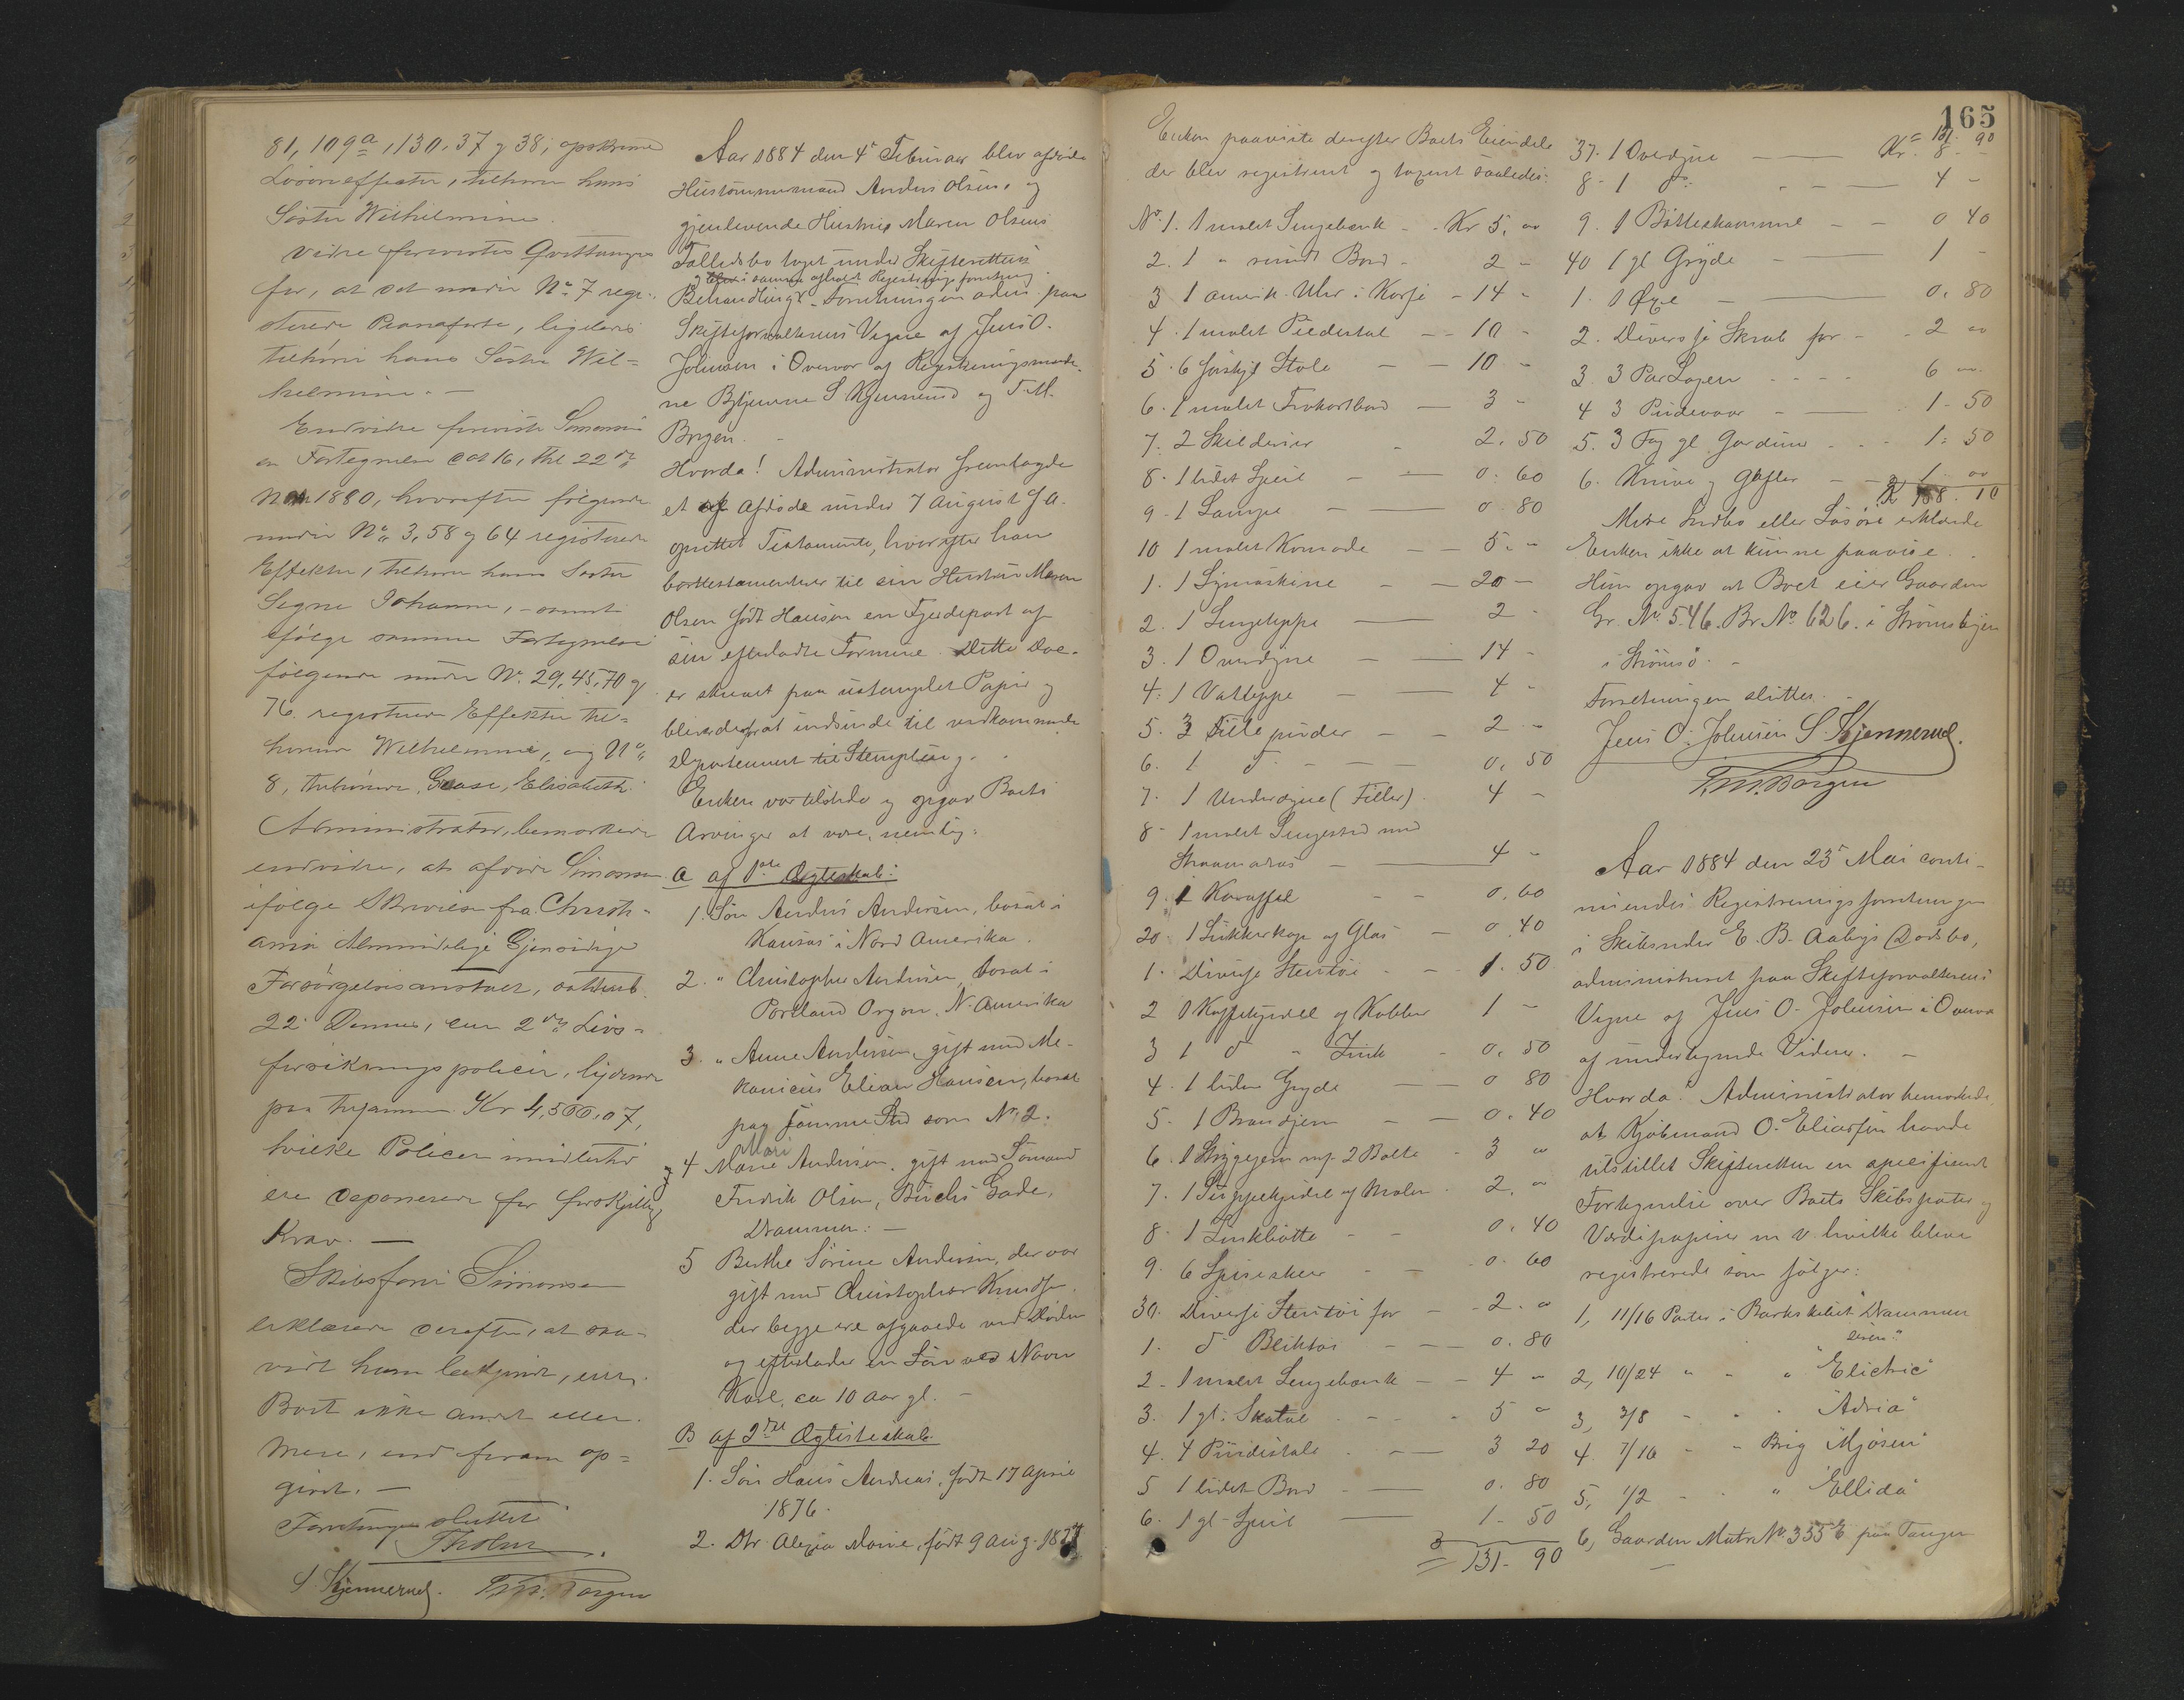 81, 109a, 130, 37 og 38, opskrevne
Løsøreeffecter, tilhører hans
Søster Wilhelmine.
Videre forevistes Qvitteringer
for, at det under No 7 regi-
strerede Pianoforte, ligeledes
tilhører hans Søster Wil=
helmine. —
Endvidere foreviste Simonsen
en Fortegnelse dat 16, till 22de
1880, hvorefter følgende
under No 3, 58 og 64 registrerede
Effekter, tilhører hans Søster
Signe Johanne, – samt
ifølge samme Fortegnelse
følgende under No. 29, 45, 70 og
76. registrerede Effekter til=
hører Wilhelmine, og No
8, tilhører Elisabeth.
Administrator, bemærkede
endvidere, at afdøde Simonsen
ifølge Skrivelse fra Christi-
ania Almindelige Gjensidige
Forsørgelsesanstalt, datteret
22 Dennes, eier 2de Livs-
forsikrings policer, lydende
paa tilsammen Kr 4,500,07,
hvilke Policer imidlertid
ere deponerede for forskjellige
Krav. —
Skibsfører Simonsen
erklærede derefter, at saa-
vidt ham bekjendt, eier
Boet ikke andet eller
mere, end foran op=
givet. —
Forretningen sluttet
Tholm
S Kjennerud. T. M. Borgen
Aar 1884 den 4de Februar blev afdøde
Huustømmermand Anders Olsen, og
gjenlevende Hustru Maren Olsens
Fælledsbo taget under Skifterettens
og blev i samme afholdt Registrerings forretning
Behandling. Forretningen adm. paa
Skifteforvalterens Vegne af Jens O.
Johnsen i Overvær af Registreringsmænde-
ne Bytjenerne S Kjennerud og T. M.
Borgen.
Hvorda! Administrator fremlagde
et af Afdøde under 7 August f. A.
oprettet Testamente, hvorefter han
borttestamenterer til sin Hustru Maren
Olsen født Hansen en Fjerdepart af
sin efterladte Formue. Dette Doc.
er skrevet paa ustemplet Papir og
bliver derfor at indsende til vedkommende
Departement til Stempling.
Enken var tilstede og opgav Boets
Arvinger at være, nemlig:
A af 1ste Ægteskab:
1. Søn Anders Andersen, bosat i
Kansas i Nord Amerika.
2. " Christopher Andersen, bosat i
Portland Orgon, N. Amerika
3. " Anne Andersen, gift med Me-
kanicus Elian Hansen, bosat
paa samme Sted som No 2.
Mari
og 4 Marie Andersen, gift med Sømand
Fredrik Olsen, Buchs Gade,
Drammen: —
5 Berthe Sørine Andersen, der var
gift med Christopher Knudsen
der begge ere afgaaede ved Døden
og efterlader en Søn ved Navn
Karl, ca 10 Aar gl. —
B af 2det Ægteskab
1. Søn Hans Andreas, født 17 April
1876.
2. Dtr Alexia Marie, født 9 Aug. 1877
165
Enken paaviste derefter Boets Eiendele
der blev registreret og taxeret saaledes:
No. 1. 1 malet Sengebænk – Kr 5, "
2. 1 " rundt Bord – 2 –
3 1 amerik. Uhr i Kasse – 14 –
4. 1 malet Piedestal – 10 –
5. 6 forskjl Stole – 10 –
6. 1 malet Frokostbord — 3 –
7. 2 Skilderier – 2. 50
8. 1 lidet Speil — 0. 60
9 – 1 Lampe — 0. 80
10 1 malet Komode — 5. –
1. 1 Symaskine — 20 –
2. 1 Sengeteppe — 2 –
3. 1 Overdyne — 14 –
4. 1 Vatteppe — 4 –
5. 3 Fille puder — 2 –
6. 1 do — 0. 50
7. 1 Underdyne (Filler) 4 –
8 – 1 malet Sengested med
Straamadras — 4 –
9. 1 Karaffel – 0. 60
20. 1 Sukkerkop af Glas – 0. 40
1. Diverse Stentøi – 1. 50
2 1 Kaffekjedel af Kobber 1 –
3 1 do " Zink – 0. 50
4. 1 liden Gryde — 0 80
5. 1 Brandjern — 0. 40
6. 1 Strygejern m. 2 Bolte – 3 "
7. 1 Suppekjedel af Malm 2. "
8. 1 Zinkbøtte – 0. 40
9. 6 Spiseskeer – 0. 60
30. Diverse Stentøi for – 2. "
1. do Bliktøi — 0. 80
2 – 1 malet Sengebænk — 4 –
3. 1 gl. Skatul – 5 "
4. 4 Pindestole — 3 20
5 1 lidet Bord — 0. 80
6. 1 gl – Speil — 1 – 50
131 – 90
Kr 131. 90
37. 1 Overdyne — 8. –
8 – 1 do — 4 –
9. 1 Bøtteskamme — 0 40
40 1 gl Gryde — 1 –
1. 1 Øxe — 0. 80
2. Diverse Skrab for – 2 "
3. 3 Par Lagen – 6 "
4 3 Pudevaar — 1 – 50
5. 3 Fag gl. Gardiner – 1. 50
6. Knive og Gafler – 1 "
Kr 158. 10
Mere Indbo eller Løsøre erklærede
Enken ikke at kunne paavise.
Hun opgav at Boet eier Gaarden
Gr. No. 546. Br No. 626. i Strømsbyen
i Strømsø. –
Forretningen sluttet.
Jens O. Johnsen S. Kjennerud.
T. M. Borgen
Aar 1884 den 23de Mai conti-
nuerdes Registreringsforretningen
i Skibsreder E. B. Aabys Dødsbo,
administreret paa Skifteforvalterens
Vegne af Jens O. Johnsen i Overvær
af undertegnede Vidner. –
Hvorda! Administrator bemærkede
at Kjøbmand O. Eliassen havde
tilstillet Skifteretten en specificeret
Fortegnelse over Boets Skibsparter og
Værdipapirer m v. hvilke bleve
registrerede som følger:
1, 11/16 Parter i Barkskibet "Drammens
eren"
2, 10/24 " " " "Electric"
3, 3/8 " " " "Adria"
4. 7/16 " " Brig "Mjøsen"
5, 1/2 " " " "Ellida"
6, Gaarden Matr No. 335 E paa Tangen